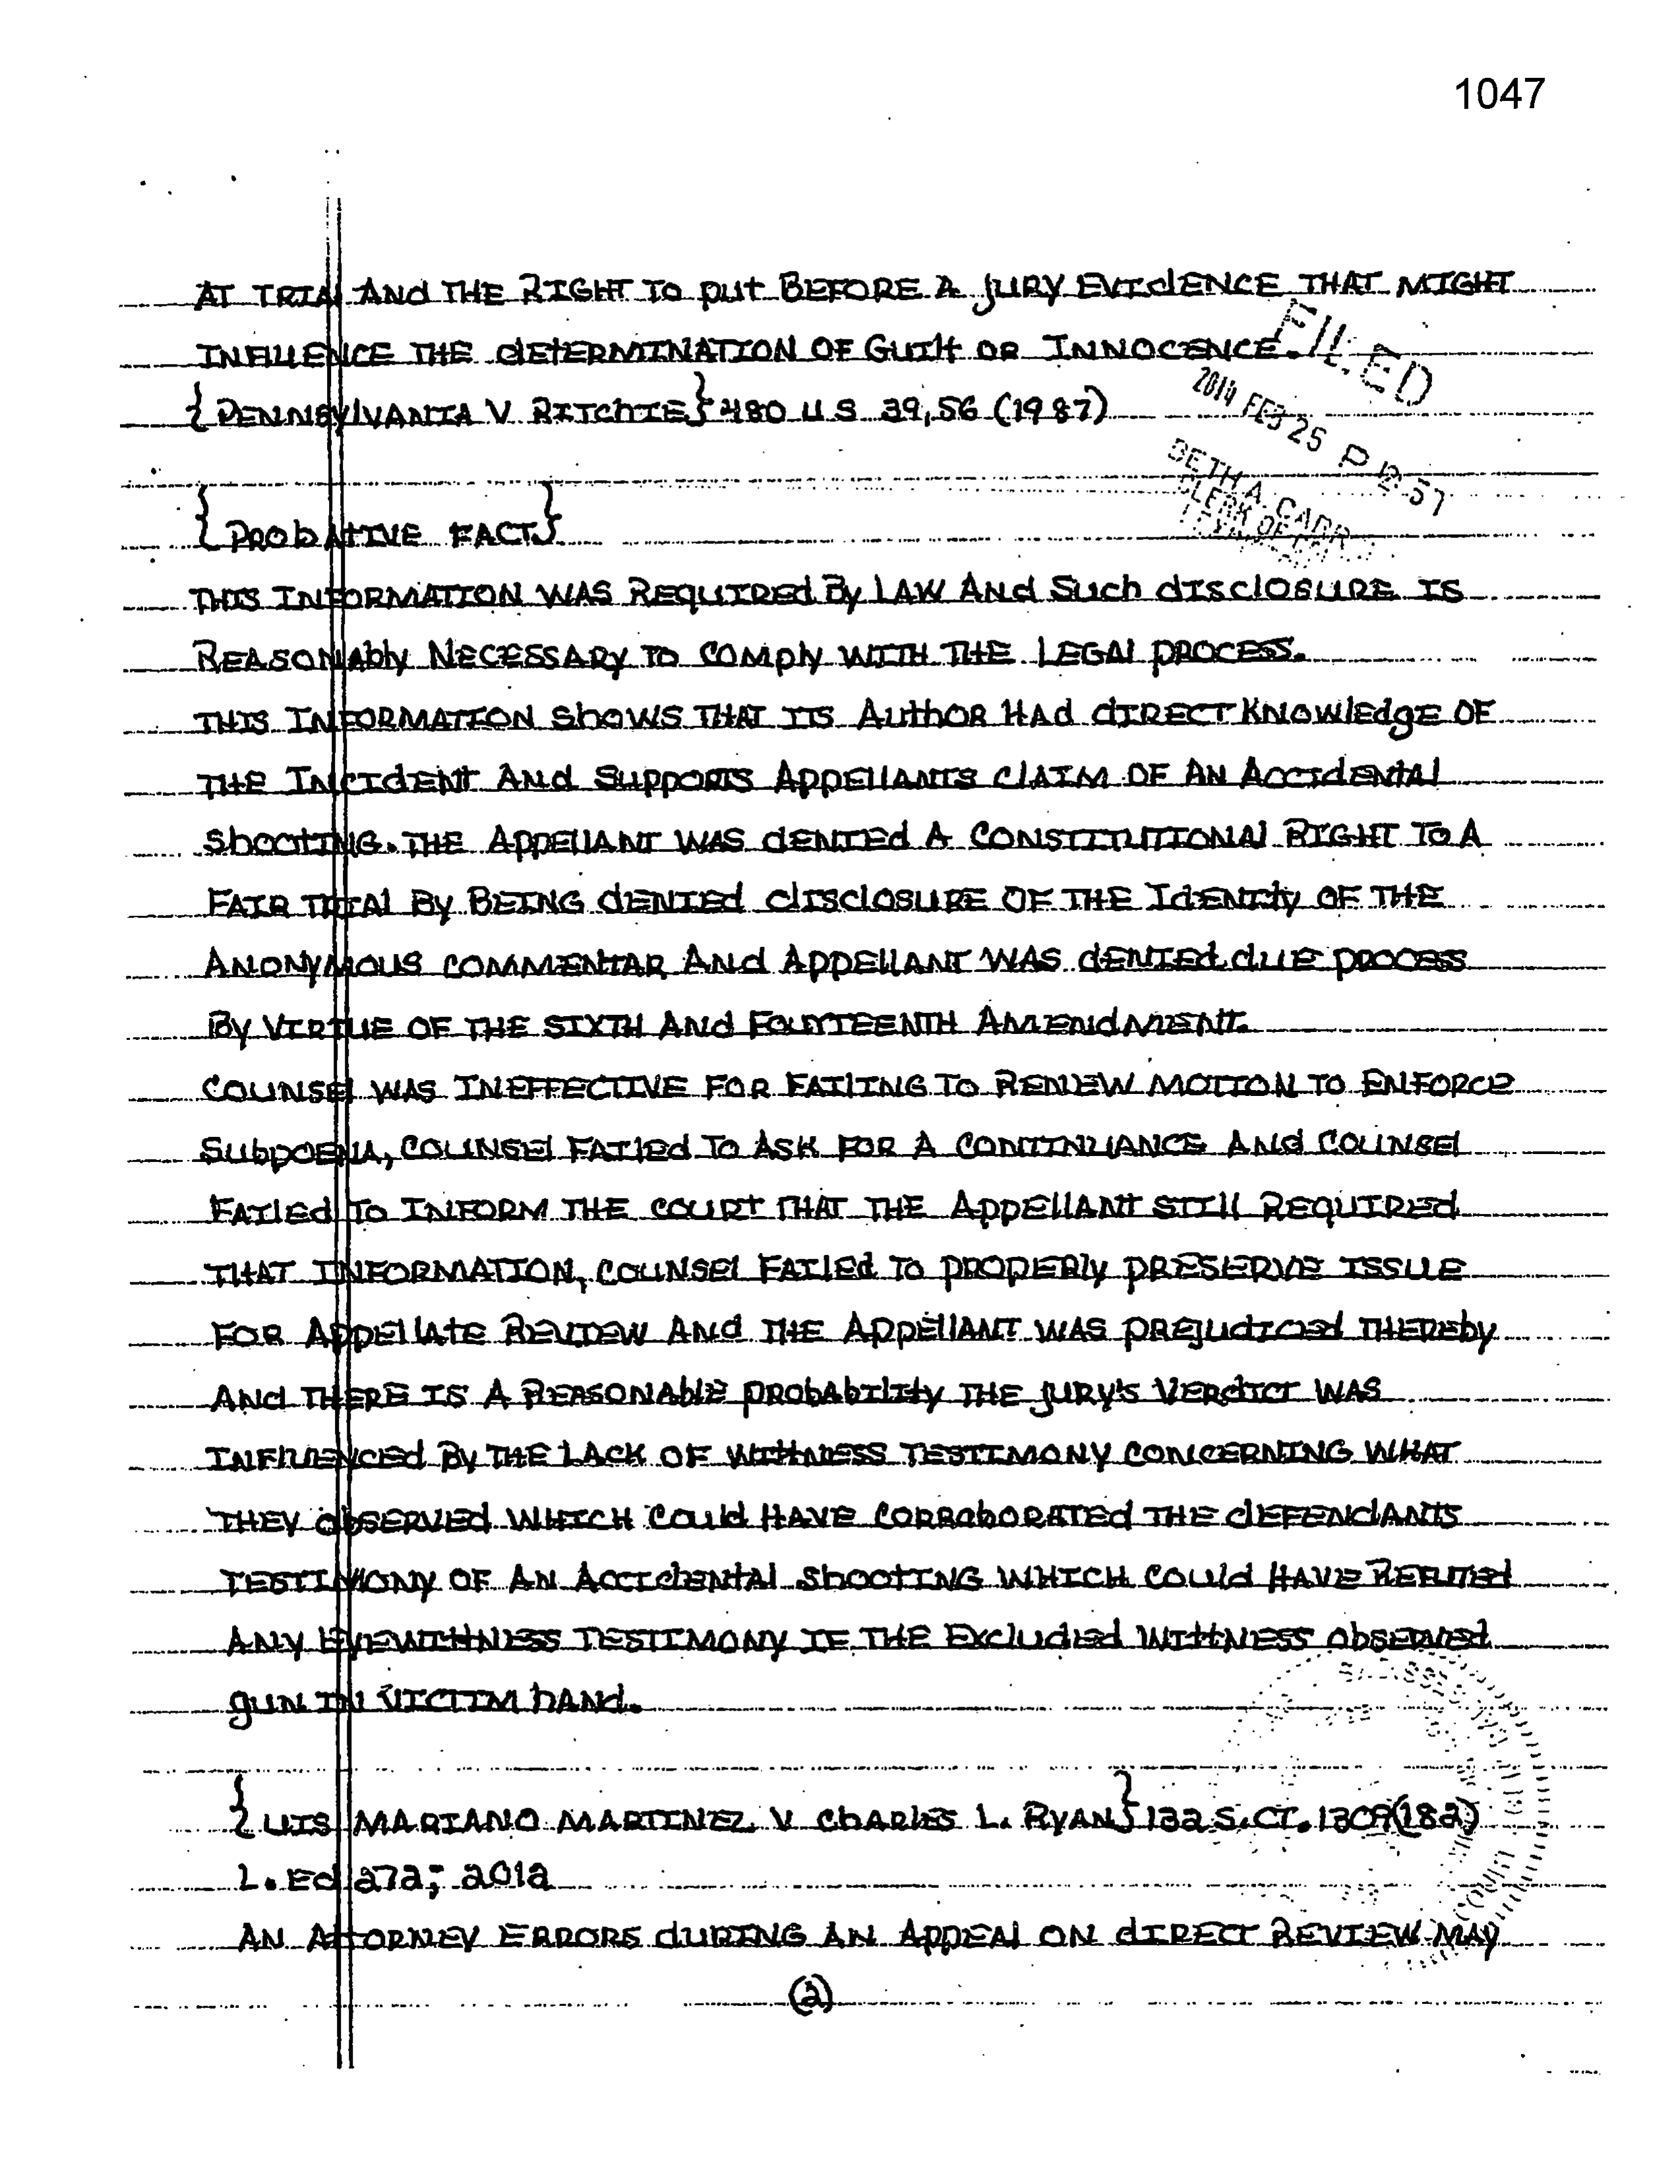 1047
AT TRIAl ANd THE RIGHT TO put BEFORE A jURY EVIdENCE THAT MIGHT
INFlUENCE THE dETERMINATION OF GUIlt OR INNOCENCE.
FILED
{PENNSYlVANIA V RITChIE} 480 U S 39,56 (1987)
2014 FEB 25 P 12:57
BETH A. CARR
CLERK OF
{PRObATIVE FACT}
THIS INFORMATION WAS REQUIREd By LAW ANd Such dISclOSURE IS
REASONAbly NECESSARy TO COMply WITH THE LEGAl pROCESS.
THIS INFORMATION ShOWS THAT ITS AuthOR HAd dIRECT KNOWlEdgE OF
THE INCIdENT ANd SuppORTS AppEllANTS clAIM OF AN ACCIdENTAl
ShOOTING. THE AppEllANT WAS dENIEd A CONSTITUTIONAl RIGHT TO A
FAIR TRIAl By BEING dENIEd dISclOSURE OF THE IdENTIty OF THE
ANONyMOUS COMMENTAR ANd AppEllANT WAS dENIEd duE pROCESS
By VIRTUE OF THE SIXTH ANd FOURTEENTH AMENdMENT.
COUNSEl WAS INEFFECTIVE FOR FAIlING TO RENEW MOTION TO ENFORCE
SubpOENA, COUNSEl FAIlEd TO ASK FOR A CONTINUANCE ANd COUNSEl
FAIlEd TO INFORM THE COURT THAT THE AppEllANt STIll REQUIREd
THAT INFORMATION, COUNSEl FAIlEd TO pROpERly pRESERVE ISSUE
FOR AppEllAtE REVIEW ANd THE AppEllANT WAS pREjudICEd THEREby
ANd THERE IS A REASONAblE pRObAbIlIty THE jURy'S VERdICT WAS
INFlUENCEd By THE lACK OF WIttNESS TESTIMONy CONCERNING WHAT
THEy ObSERVEd WHICH COUld HAVE CORRAbORATEd THE dEFENdANTS
TESTIMONy OF AN ACCIdENTAl ShOOTING WHICH COUld HAVE REFUTEd
ANy EyEWIttNESS TESTIMONy IF THE EXCludEd WIttNESS ObSERVEd
gUN IN VICTIM hANd.
{LUIS MARIANO MARTINEZ V ChARlES L. RyAN} 132 S.CT. 1309(182)
L. Ed 272; 2012
AN ATTORNEY ERRORS duRING AN AppEAl ON dIRECT REVIEW MAy
(2)